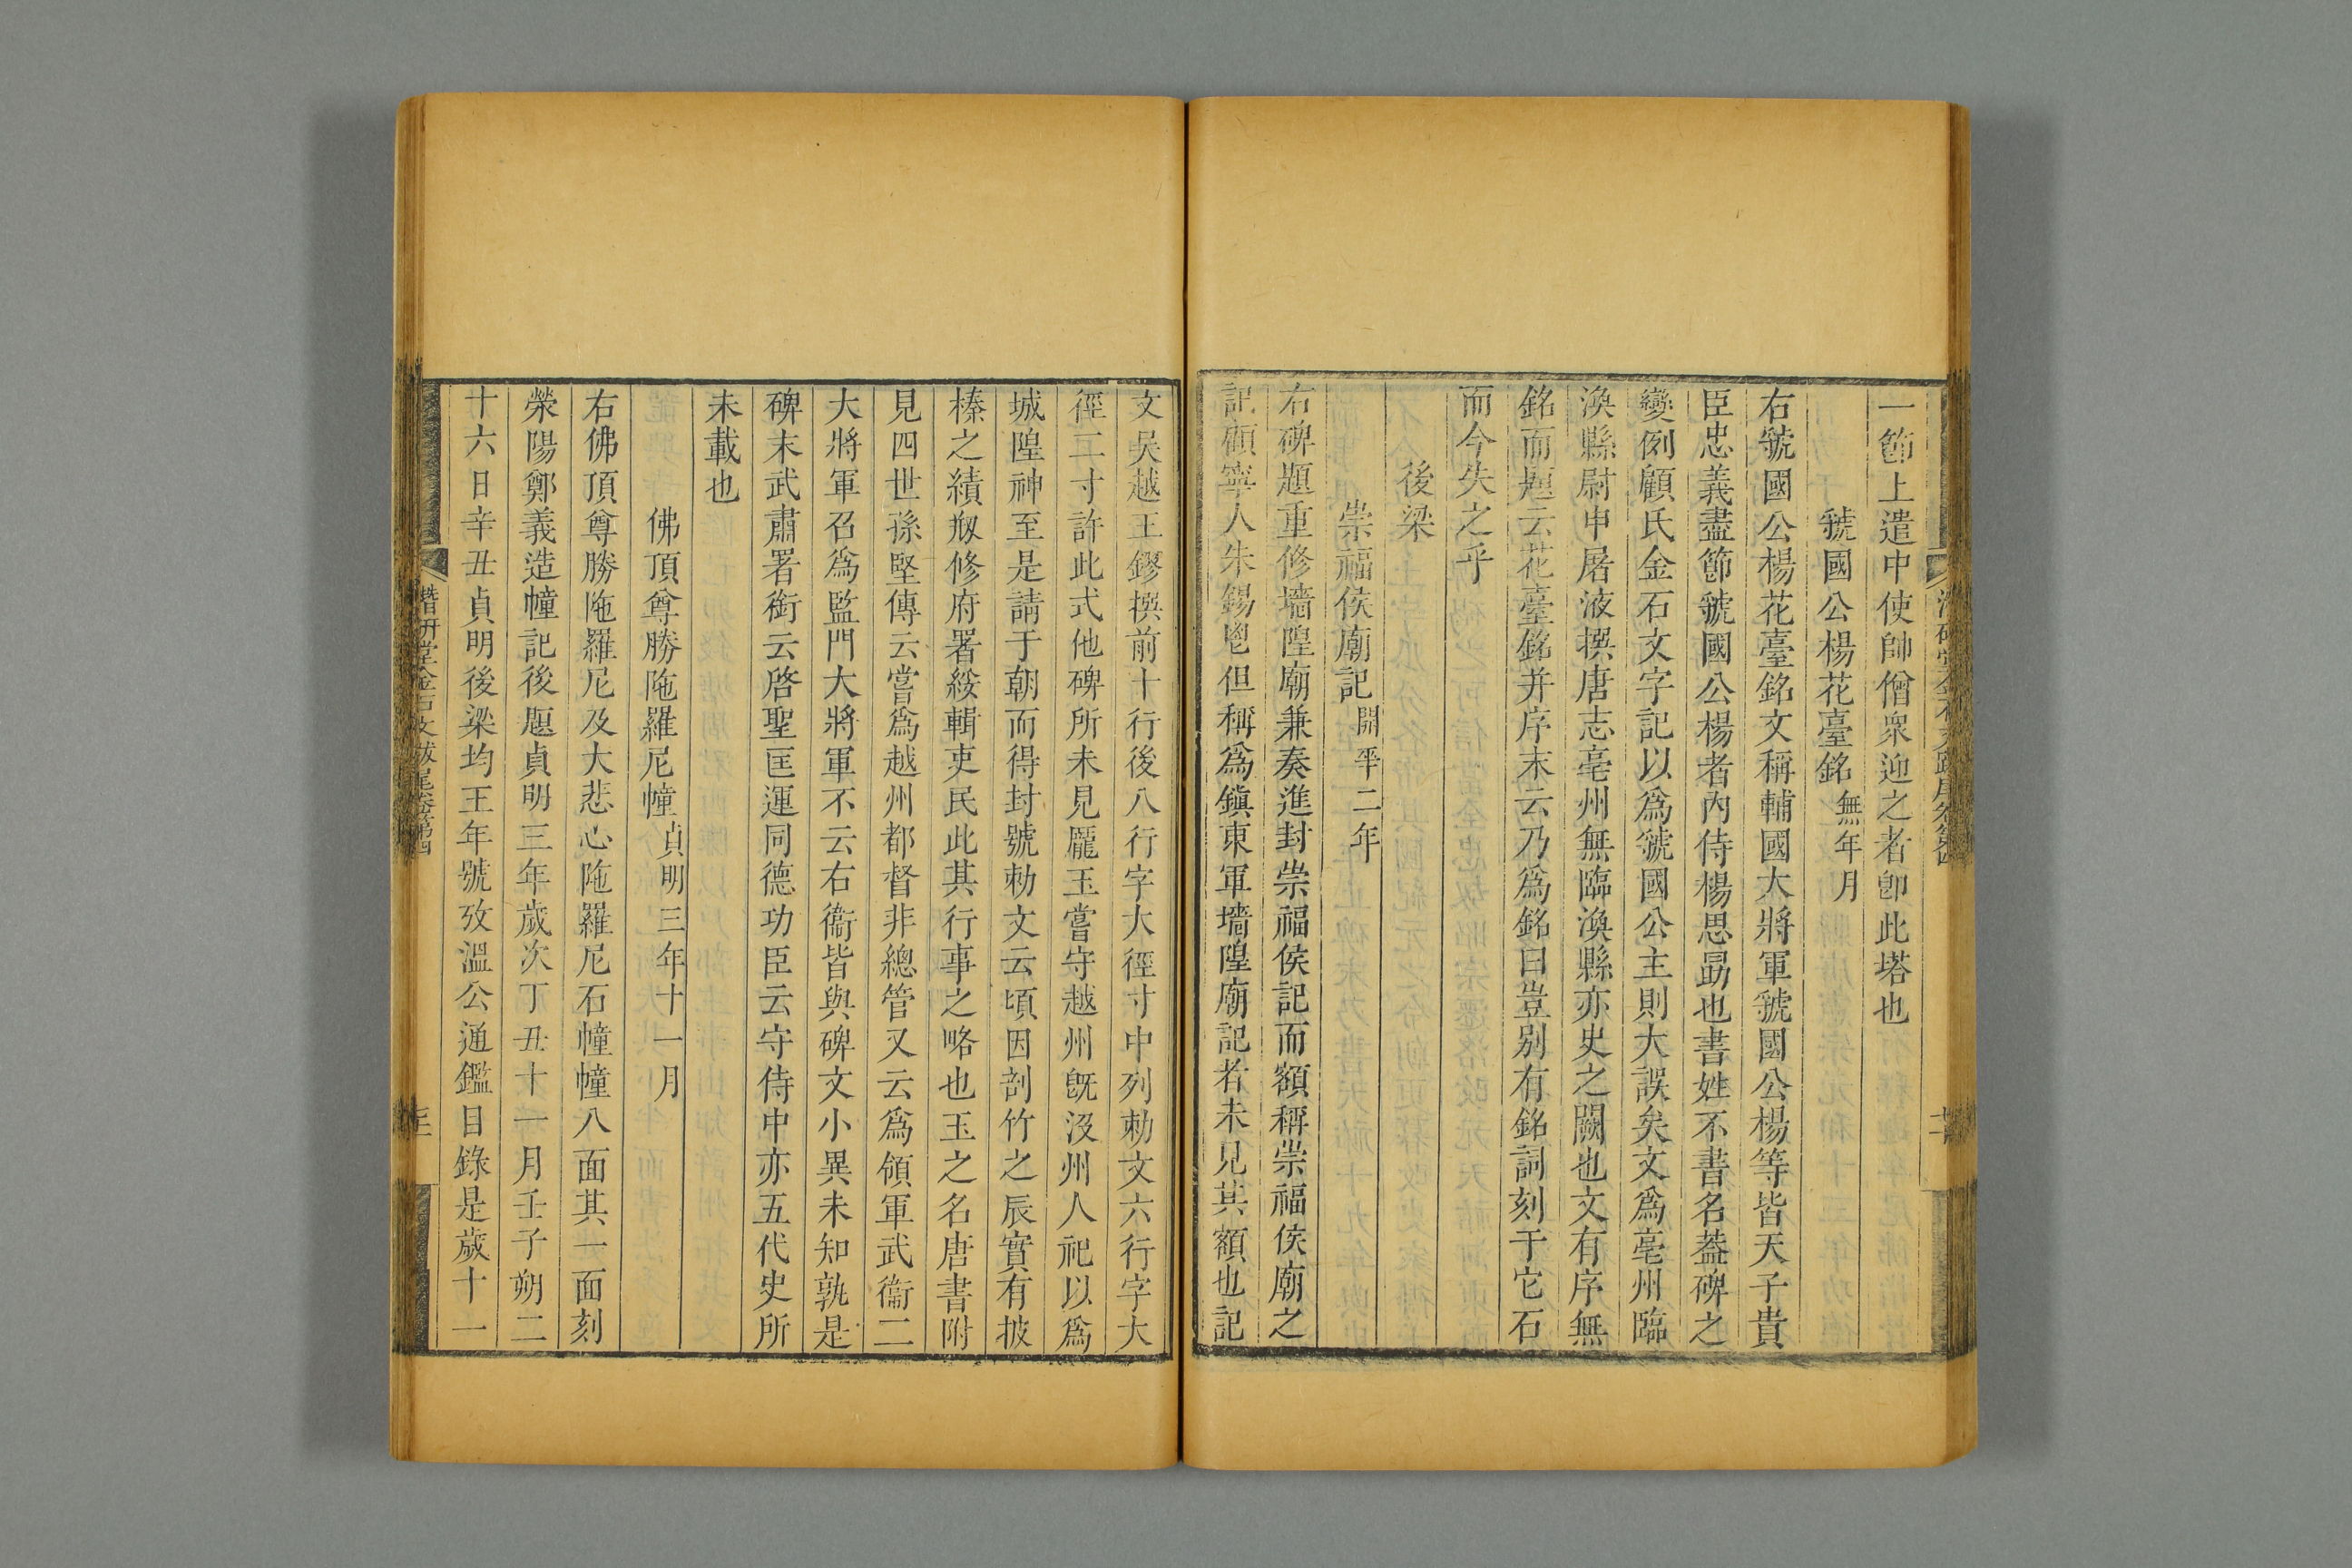 一節上遣中使帥僧衆迎之者卽此塔也
虢國公楊花臺銘無年月
右虢國公楊花臺銘文稱輔國大將軍虢國公楊等皆天子貴
臣忠義盡節虢國公楊者內侍楊思勗也書姓不書名葢碑之
變例顧氏金石文字記以爲虢國公主則大誤矣文爲亳州臨
渙縣尉申屠液撰唐志亳州無臨渙縣亦史之闕也文有序無
銘而題云花臺銘并序末云乃爲銘曰豈别有銘詞刻于它石
而今失之乎
後梁
崇福侯廟記開平二年
右碑題重修墻隍廟兼奏進封崇福侯記而額稱崇福侯廟之
記顧寧人朱錫鬯但稱爲鎭東軍墻隍廟記者未見其額也記
文吳越王鏐撰前十行後八行字大徑寸中列勅文六行字大
徑二寸許此式他碑所未見龎玉嘗守越州旣沒州人祀以爲
城隍神至是請于朝而得封號勅文云頃因剖竹之辰實有披
榛之績剏修府署綏輯吏民此其行事之略也玉之名唐書附
見四世孫堅傳云嘗爲越州都督非總管又云爲領軍武衞二
大將軍召爲監門大將軍不云右衞皆與碑文小異未知孰是
碑末武肅署銜云啓聖匡運同德功臣云守侍中亦五代史所
未載也
佛頂尊勝陁羅尼幢貞明三年十一月
右佛頂尊勝陁羅尼及大悲心陁羅尼石幢幢八面其一面刻
滎陽鄭義造幢記後題貞明三年歲次丁丑十一月壬子朔二
十六日辛丑貞明後梁均王年號攷溫公通鑑目錄是歲十一
潛研堂金石文跋尾卷第四